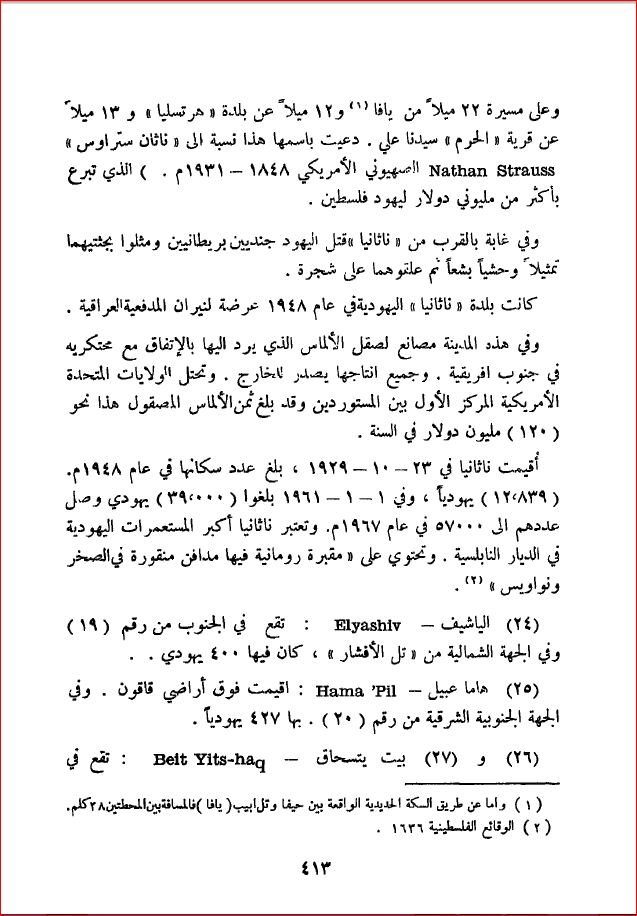 وعلى مسيرة ٢٢ ميلاً من يافا (١) و١٢ ميلاً عن بلدة « هرتسليا » و ١٣ ميلاً
عن قرية « الحرم » سيدنا علي . دعيت باسمها هذا نسبة الى « ناثان ستراوس »
Nathan Strauss الصهيوني الأمريكي ١٨٤٨ – ١٩٣١م . ) الذي تبرع
بأكثر من مليوني دولار ليهود فلسطين .
وفي غابة بالقرب من « ناثانيا » قتل اليهود جنديين بريطانيين ومثلوا بجثتيهما
تمثيلاً وحشياً بشعاً ثم علقوهما على شجرة .
كانت بلدة « ناثانيا » اليهودية في عام ١٩٤٨ عرضة لنيران المدفعية العراقية .
وفي هذه المدينة مصانع لصقل الألماس الذي يرد اليها بالإتفاق مع محتكريه
في جنوب افريقية . وجميع انتاجها يصدر للخارج . وتحتل الولايات المتحدة
الأمريكية المركز الأول بين المستوردين وقد بلغ ثمن الألماس المصقول هذا نحو
( ١٢٠ ) مليون دولار في السنة .
أقيمت ناثانيا في ٢٣ – ١٠ – ١٩٢٩ ، بلغ عدد سكانها في عام ١٩٤٨م.
( ١٢،٨٣٩ ) يهودياً ، وفي ١ – ١ – ١٩٦١ بلغوا ( ٣٩،٠٠٠ ) يهودي وصل
عددهم الى ٥٧٠٠٠ في عام ١٩٦٧م. وتعتبر ناثانيا أكبر المستعمرات اليهودية
في الديار النابلسية . وتحتوي على « مقبرة رومانية فيها مدافن منقورة في الصخر
ونواويس » (٢) .
(٢٤) الياشيف – Elyashiv : تقع في الجنوب من رقم ( ١٩ )
وفي الجهة الشمالية من « تل الأفشار » ، كان فيها ٤٠٠ يهودي . .
(٢٥) هاما عبيل – Hama 'Pil : اقيمت فوق أراضي قاقون . وفي
الجهة الجنوبية الشرقية من رقم ( ٢٠ ) . بها ٤٢٧ يهودياً .
(٢٦) و (٢٧) بيت يتسحاق – Beit Yits-haq : تقع في
( ١ ) واما عن طريق السكة الحديدية الواقعة بين حيفا وتل ابيب ( يافا ) فالمسافة بين المحطتين ٣٨ كلم.
( ٢ ) الوقائع الفلسطينية ١٦٣٦ .
٤١٣